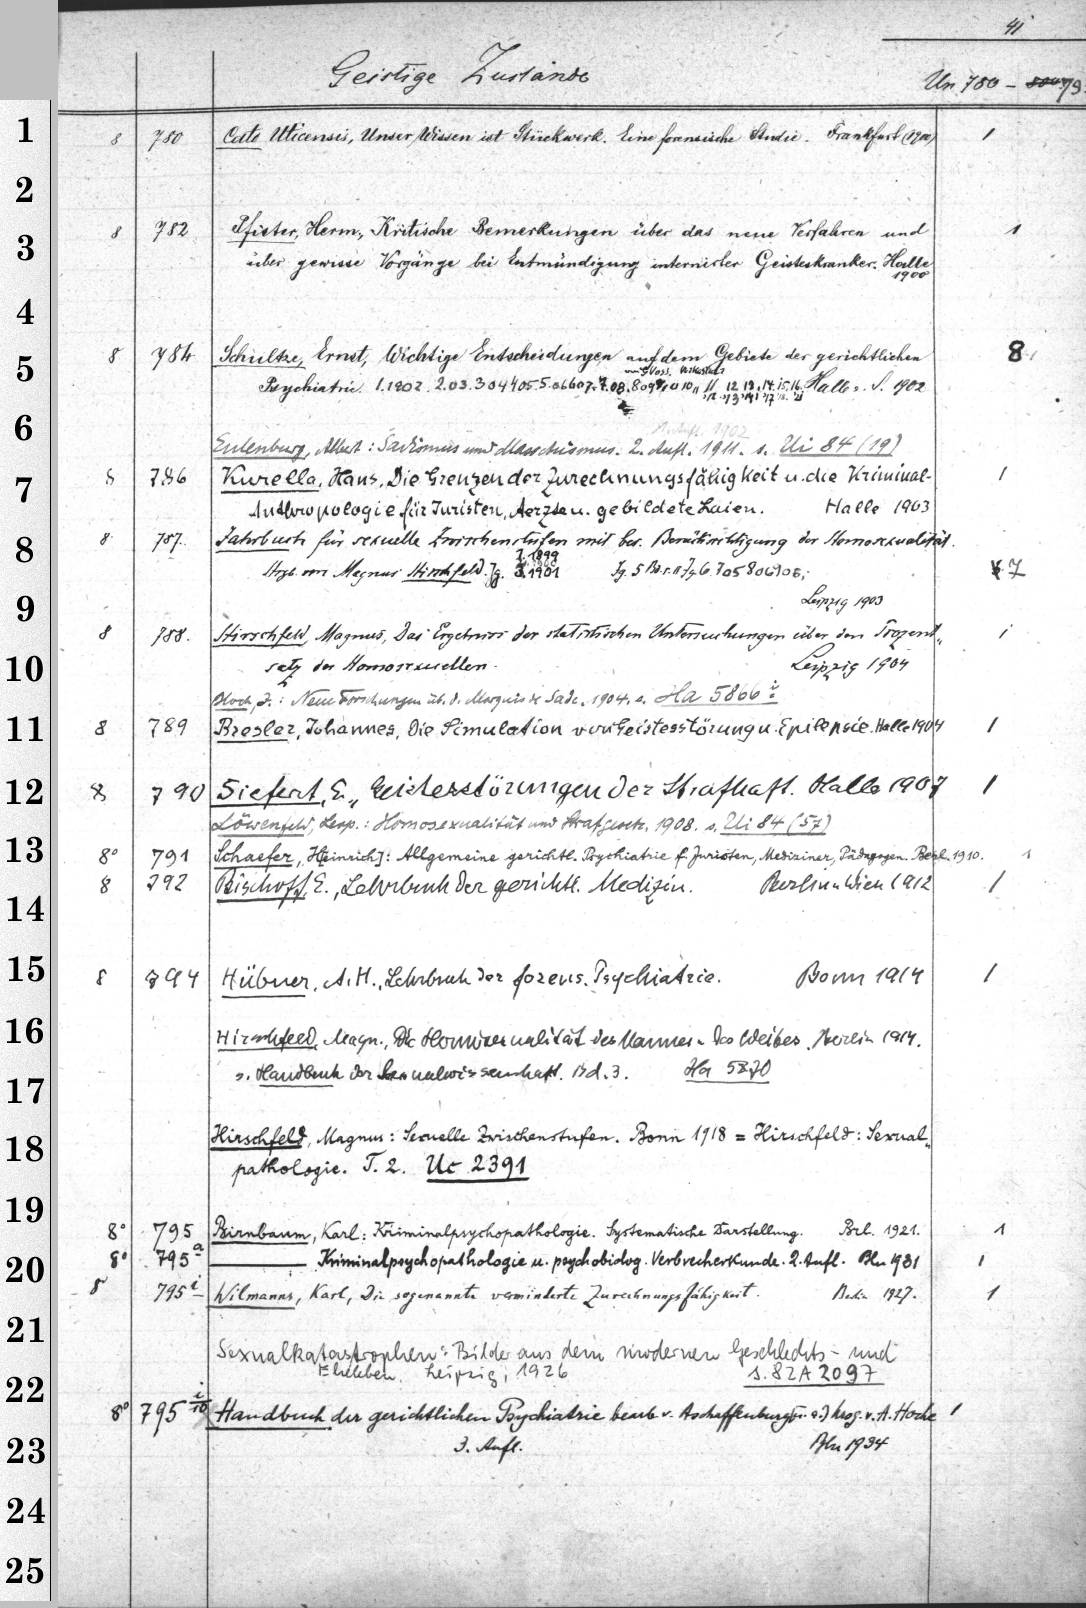 41
Geistige Zustände
Un 780 – 79
1 8 780 Cato Uticensis, Unser Wissen ist Stückwerk. Eine forensische Studie. Frankfurt (1900) 1
2
3 8 782 Pfister, Herm., Kritische Bemerkungen über das neue Verfahren und 1
über gewisse Vorgänge bei Entmündigung internirter Geisteskranker. Halle
1900
4
5 8 784 Schultze, Ernst, Wichtige Entscheidungen auf dem Gebiete der gerichtlichen 8
Psychiatrie. 1.1902. 2.03. 3 04 4 05 5.06 6 07. 7.08. 8 09 10 11 12 13. 14. 15. 16. Halle a. S. 1902
6
Eulenburg, Albert: Sadismus und Masochismus. 2. Aufl. 1911. s. Ui 84 (19)
7 8 786 Kurella, Hans, Die Grenzen der Zurechnungsfähigkeit u. die Kriminal- 1
Anthropologie für Juristen, Aerzte u. gebildete Laien. Halle 1903
8 8 787. Jahrbuch für sexuelle Zwischenstufen mit bes. Berücksichtigung der Homosexualität.
I. 1899
Hrgb. von Magnus Hirschfeld. Jg. 3. 1901 Jg. 5 Jg 6. 7 05 8 06 9 08; 7
9 Leipzig 1903
8 788. Hirschfeld, Magnus, Das Ergebnis der statistischen Untersuchungen über den Prozent- 1
10 satz der Homosexuellen. Leipzig 1904
Bloch, I.: Neue Forschungen üb. d. Marquis de Sade. 1904. s. Ha 5866 i
11 8 789 Bresler, Johannes, Die Simulation von Geistesstörung u. Epilepsie. Halle 1904 1
12 8 790 Siefert, E., Geistesstörungen der Strafhaft. Halle 1907 1
Löwenfeld, Leop.: Homosexualität und Strafgesetz. 1908. s. Ui 84 (57)
13 8° 791 Schaefer, H[einrich]: Allgemeine gerichtl. Psychiatrie f. Juristen, Mediziner, Pädagogen. Berl. 1910. 1
8 792 Bischoff, E., Lehrbuch der gerichtl. Medizin. Berlin u Wien 1912 1
14
15 8 794 Hübner, A. H., Lehrbuch der forens. Psychiatrie. Bonn 1914 1
16 Hirschfeld, Magn., Die Homosexualität des Mannes u. des Weibes. Berlin 1914.
17 s. Handbuch der Sexualwissenschaft. Bd. 3. Ha 5870
18 Hirschfeld, Magnus: Sexuelle Zwischenstufen. Bonn 1918 = Hirschfeld: Sexual-
pathologie. T. 2. Uc 2391
19 8° 795 Birnbaum, Karl: Kriminalpsychopathologie. Systematische Darstellung. Brl. 1921. 1
20 8° 795 a Kriminalpsychopathologie u. psychobiolog. Verbrecherkunde. 2. Aufl. Bln 1931 1
8 795 i Wilmanns, Karl, Die sogenannte verminderte Zurechnungsfähigkeit. Berlin 1927. 1
21 Sexualkatastrophen: Bilder aus dem modernen Geschlechts- und
22 Eheleben. Leipzig, 1926 s. 8Z A 2097
8° 795 i/10 Handbuch der gerichtlichen Psychiatrie bearb v. Aschaffenburg [u. a.] hrsg. v. A. Hoche 1
23 3. Aufl. Bln 1934
24
25